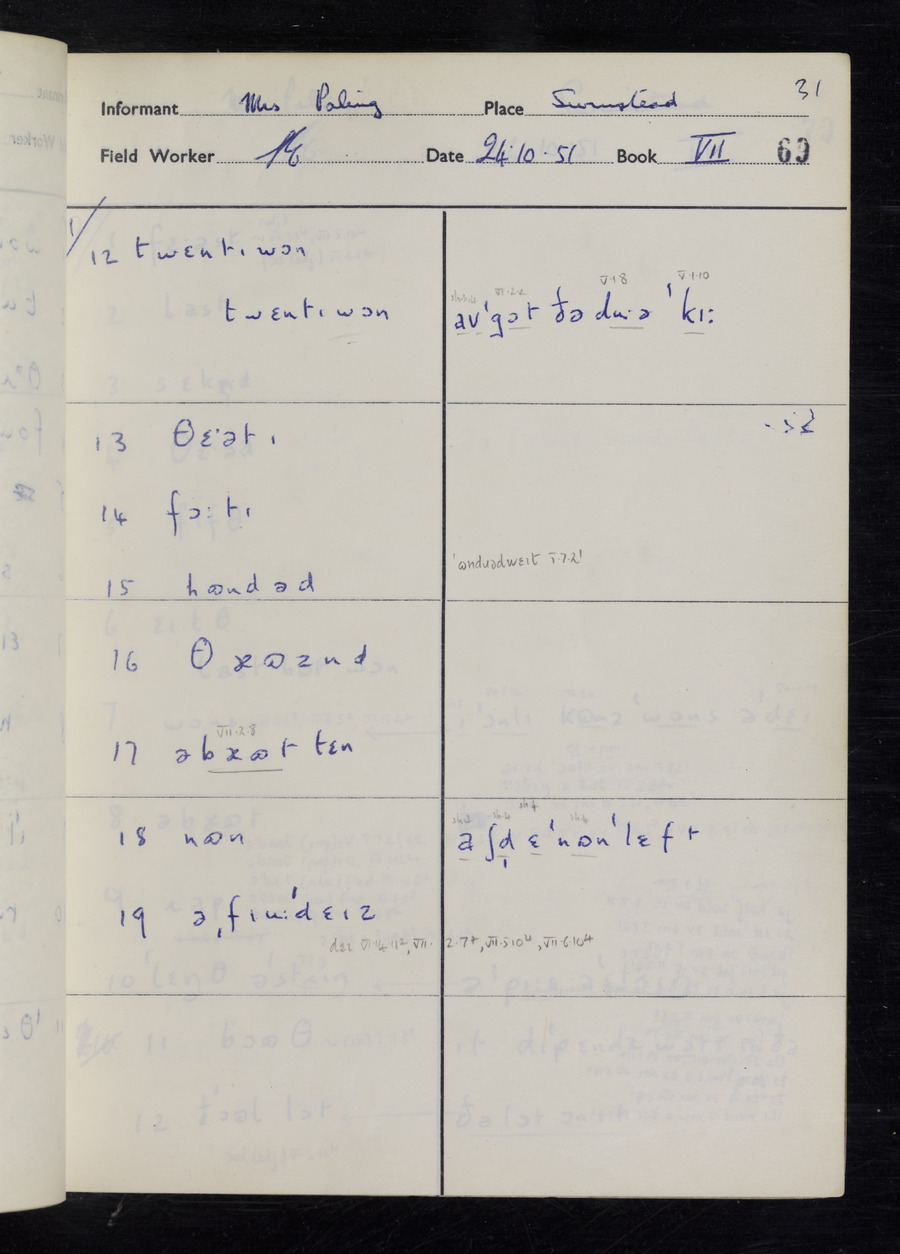 31
Informant Mrs Paling Place Swinstead
Field Worker Date 24·10·51 Book VII 69
1/
12 twɛntɪ wɔn
twɛntɪ wɔn
VI·2·2 V·1·8 V·1·10
av ˈgɔt ðə du·ə ˈkɪ:
13 θɛ·ətɪ
14 fɔ:tɪ
ˈʊndɹədwɛɪt I·7·2ˈ
15 hʊndəd
16 θæʊznd
VII·2·8
17 əbæʊt tɛn
sh.2 sh.4 sh.4 sh.4
18 nʊn a ʃd ɛˈnʊnˈlɛft
19 əˌfɪu:ˈdɛɪz
dɛɪ VI·14·11², VII·2·7⁴, VII·5·10⁴, VII·6·10⁴